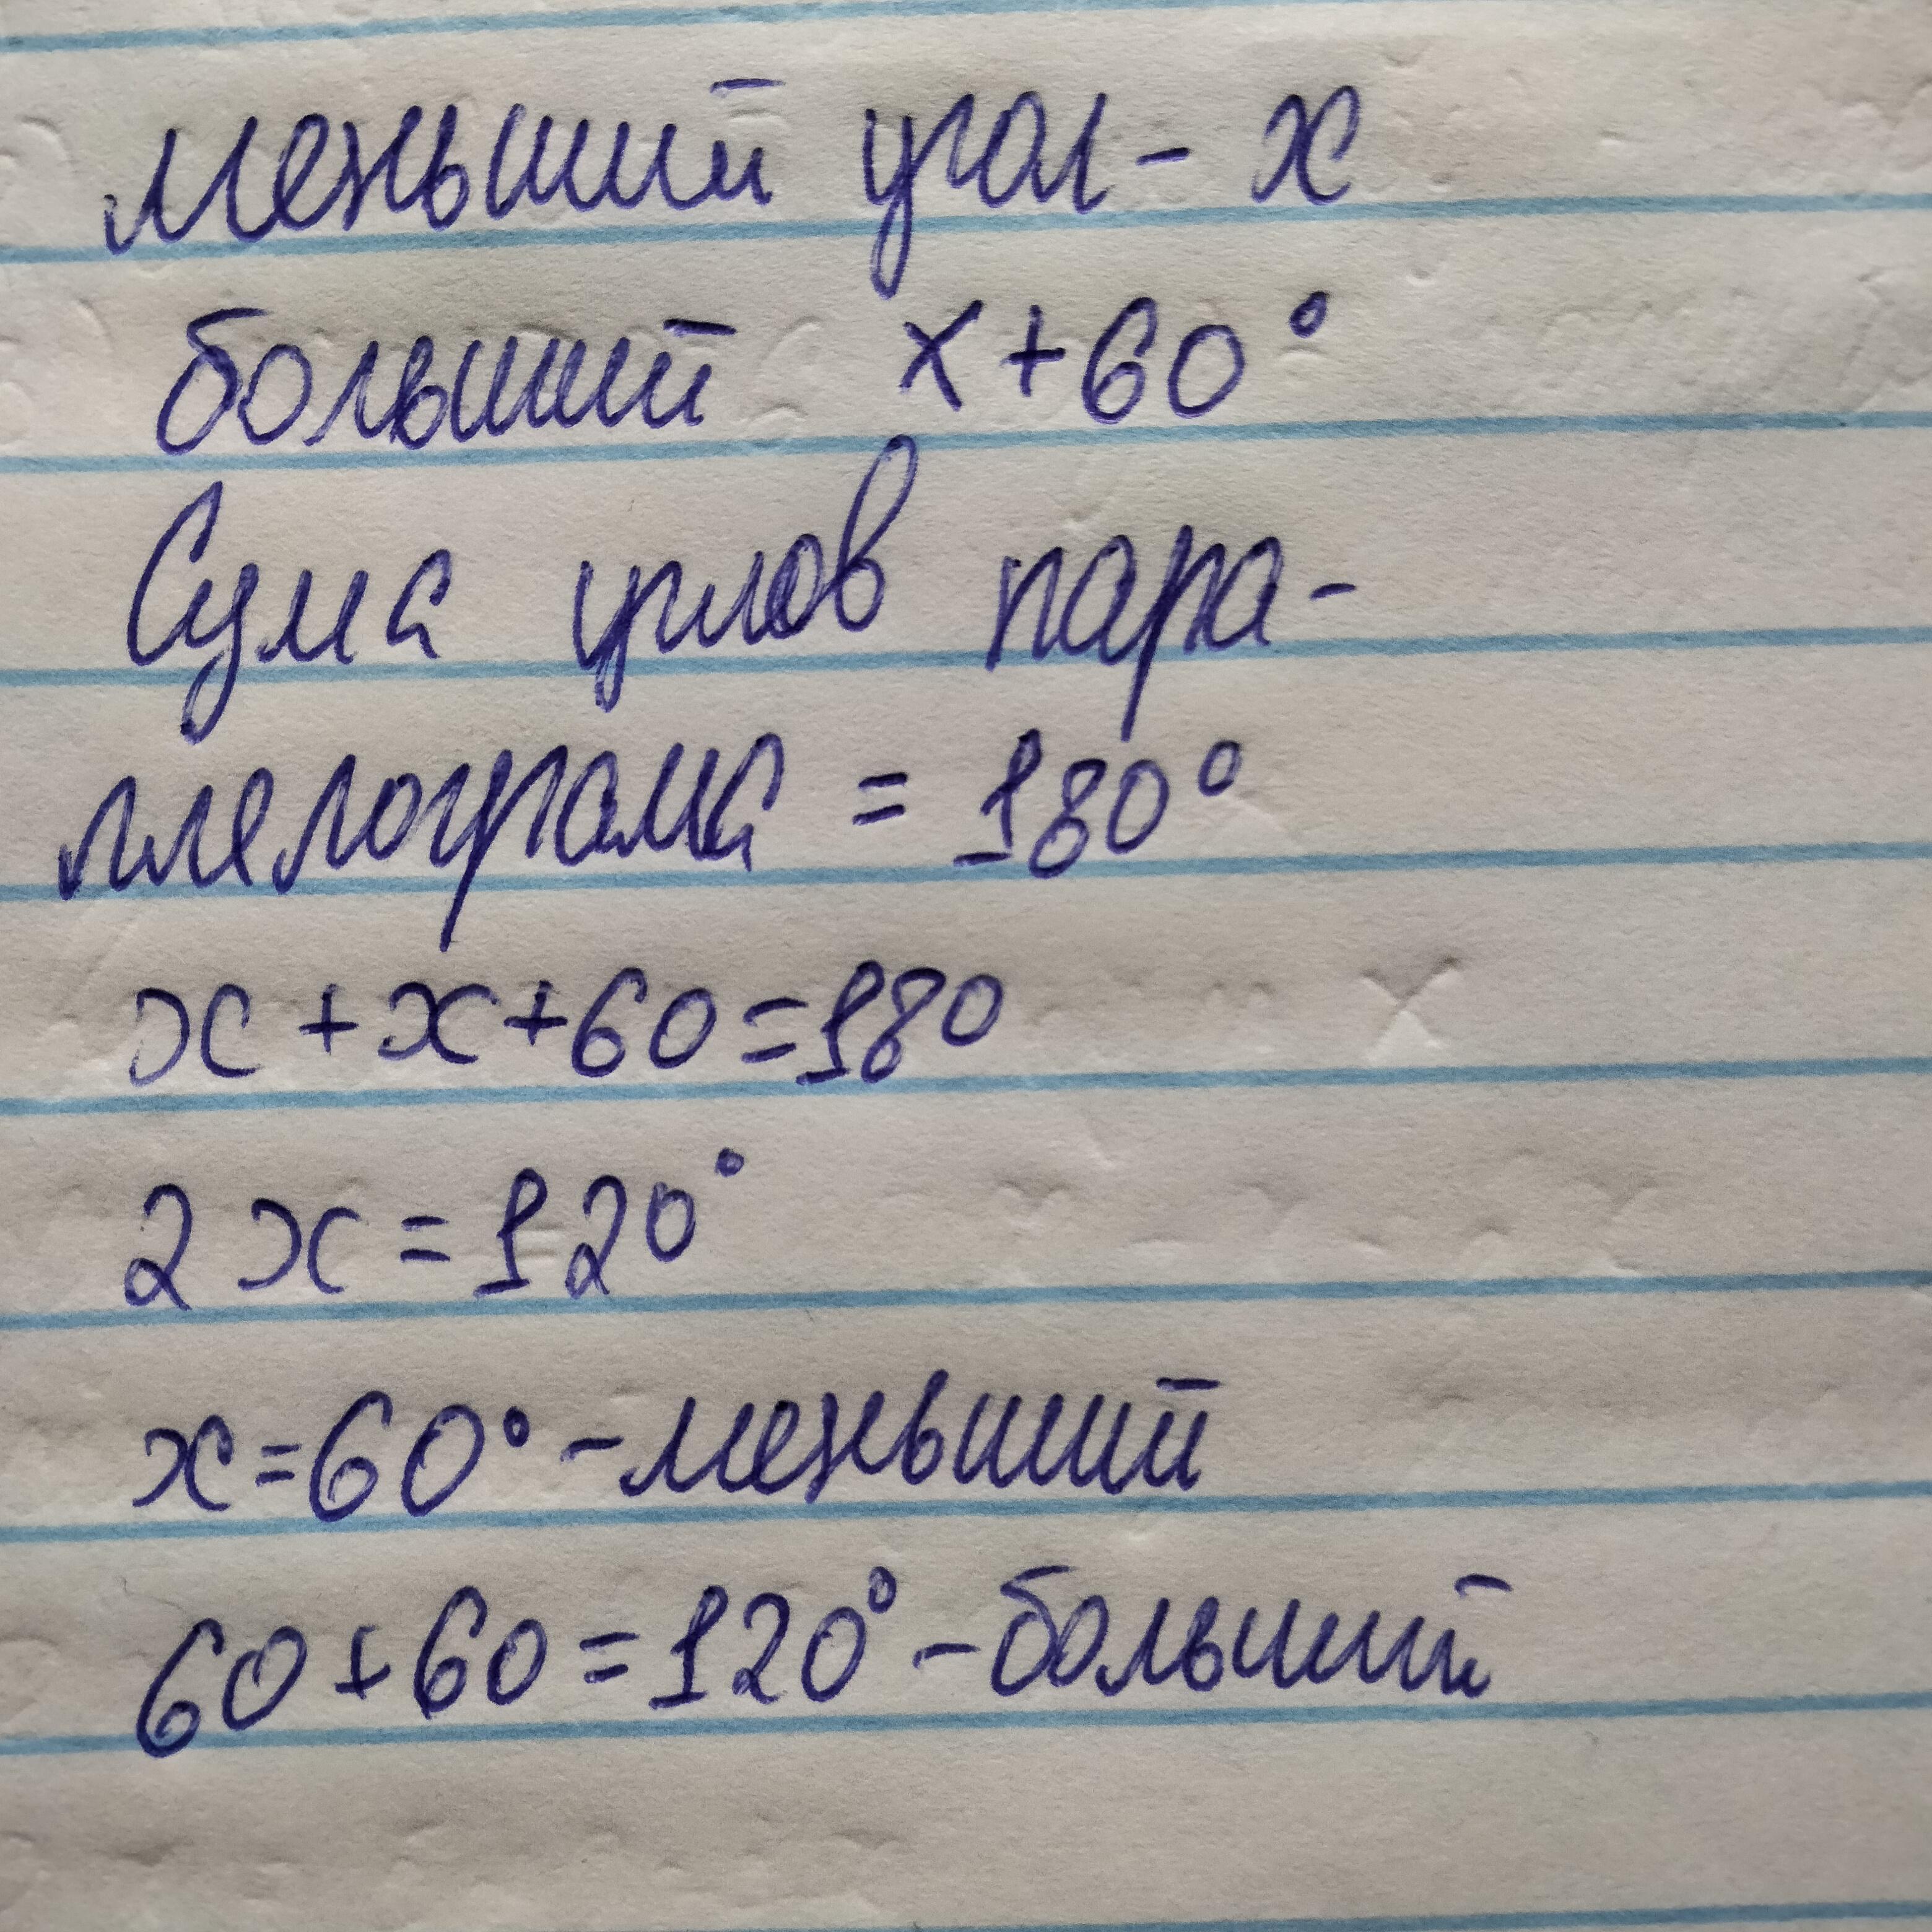 меньший угол - х
больший х + 60°
Сума углов пара-
ллелограма = 180°
х + х + 60 = 180
2х = 120°
х = 60° - меньший
60 + 60 = 120° - больший